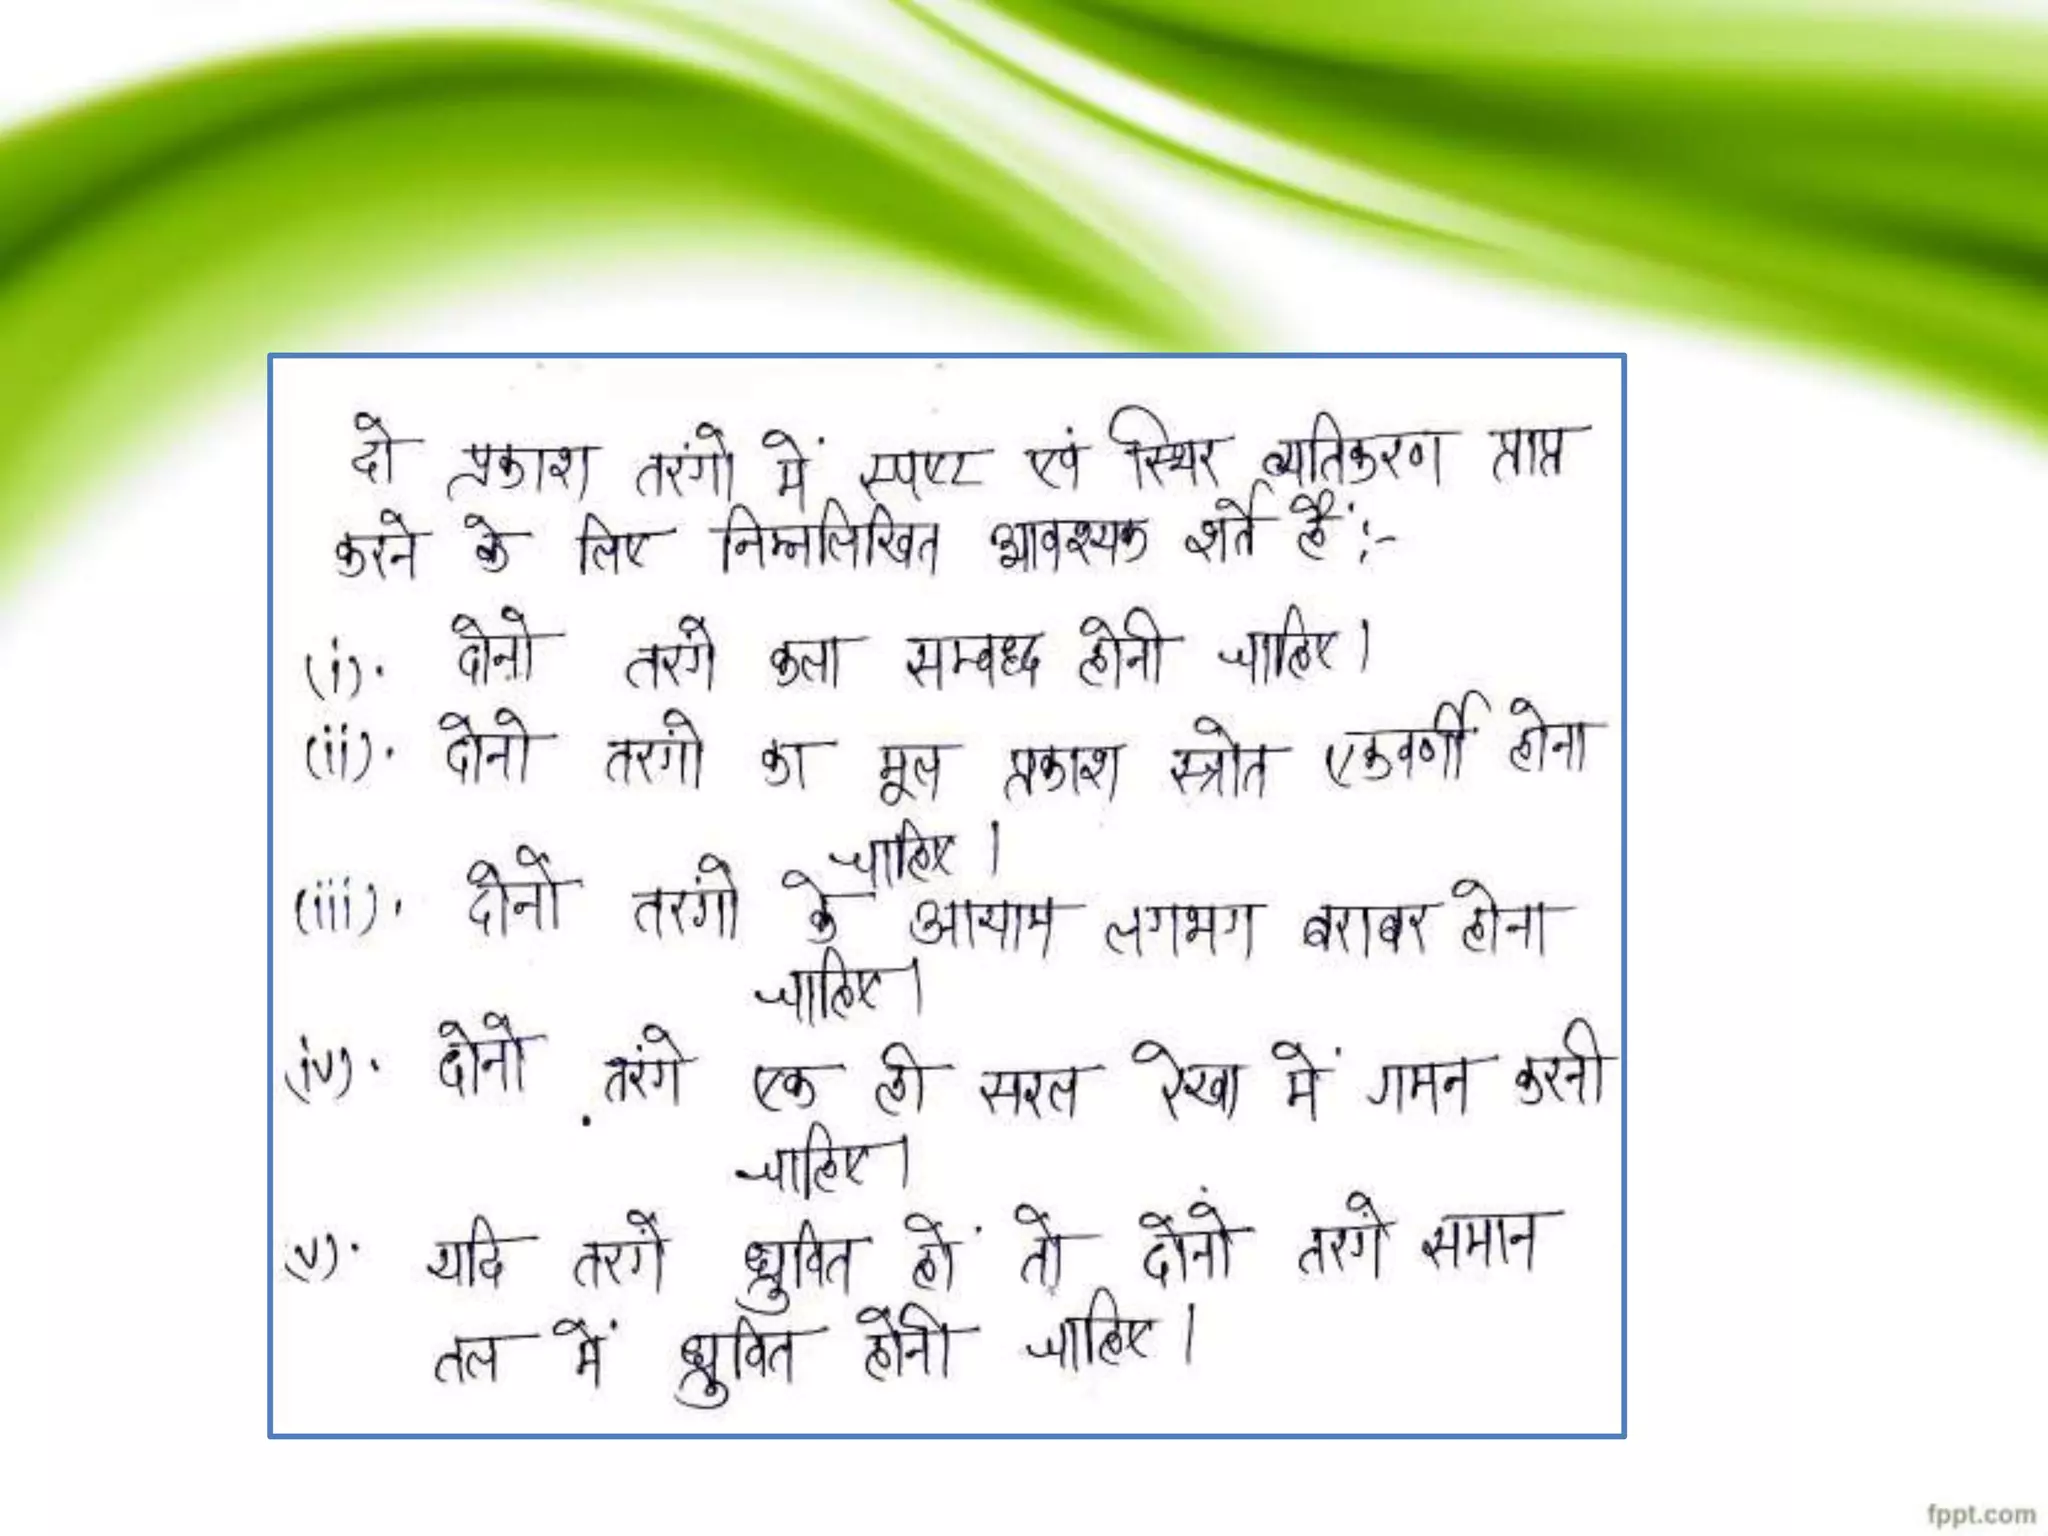 दो प्रकाश तरंगो में स्पष्ट एवं स्थिर व्यतिकरण प्राप्त
करने के लिए निम्नलिखित आवश्यक शर्ते हैं :-
(i). दोनो तरंगे कला सम्बद्ध होनी चाहिए।
(ii). दोनो तरंगो का मूल प्रकाश स्त्रोत एकवर्णी होना
चाहिए ।
(iii). दोनों तरंगो के आयाम लगभग बराबर होना
चाहिए।
(iv). दोनों तरंगे एक ही सरल रेखा में गमन करनी
चाहिए।
(v). यदि तरंगें ध्रुवित हों तो दोनों तरंगे समान
तल में ध्रुवित होनी चाहिए ।
fppt.com